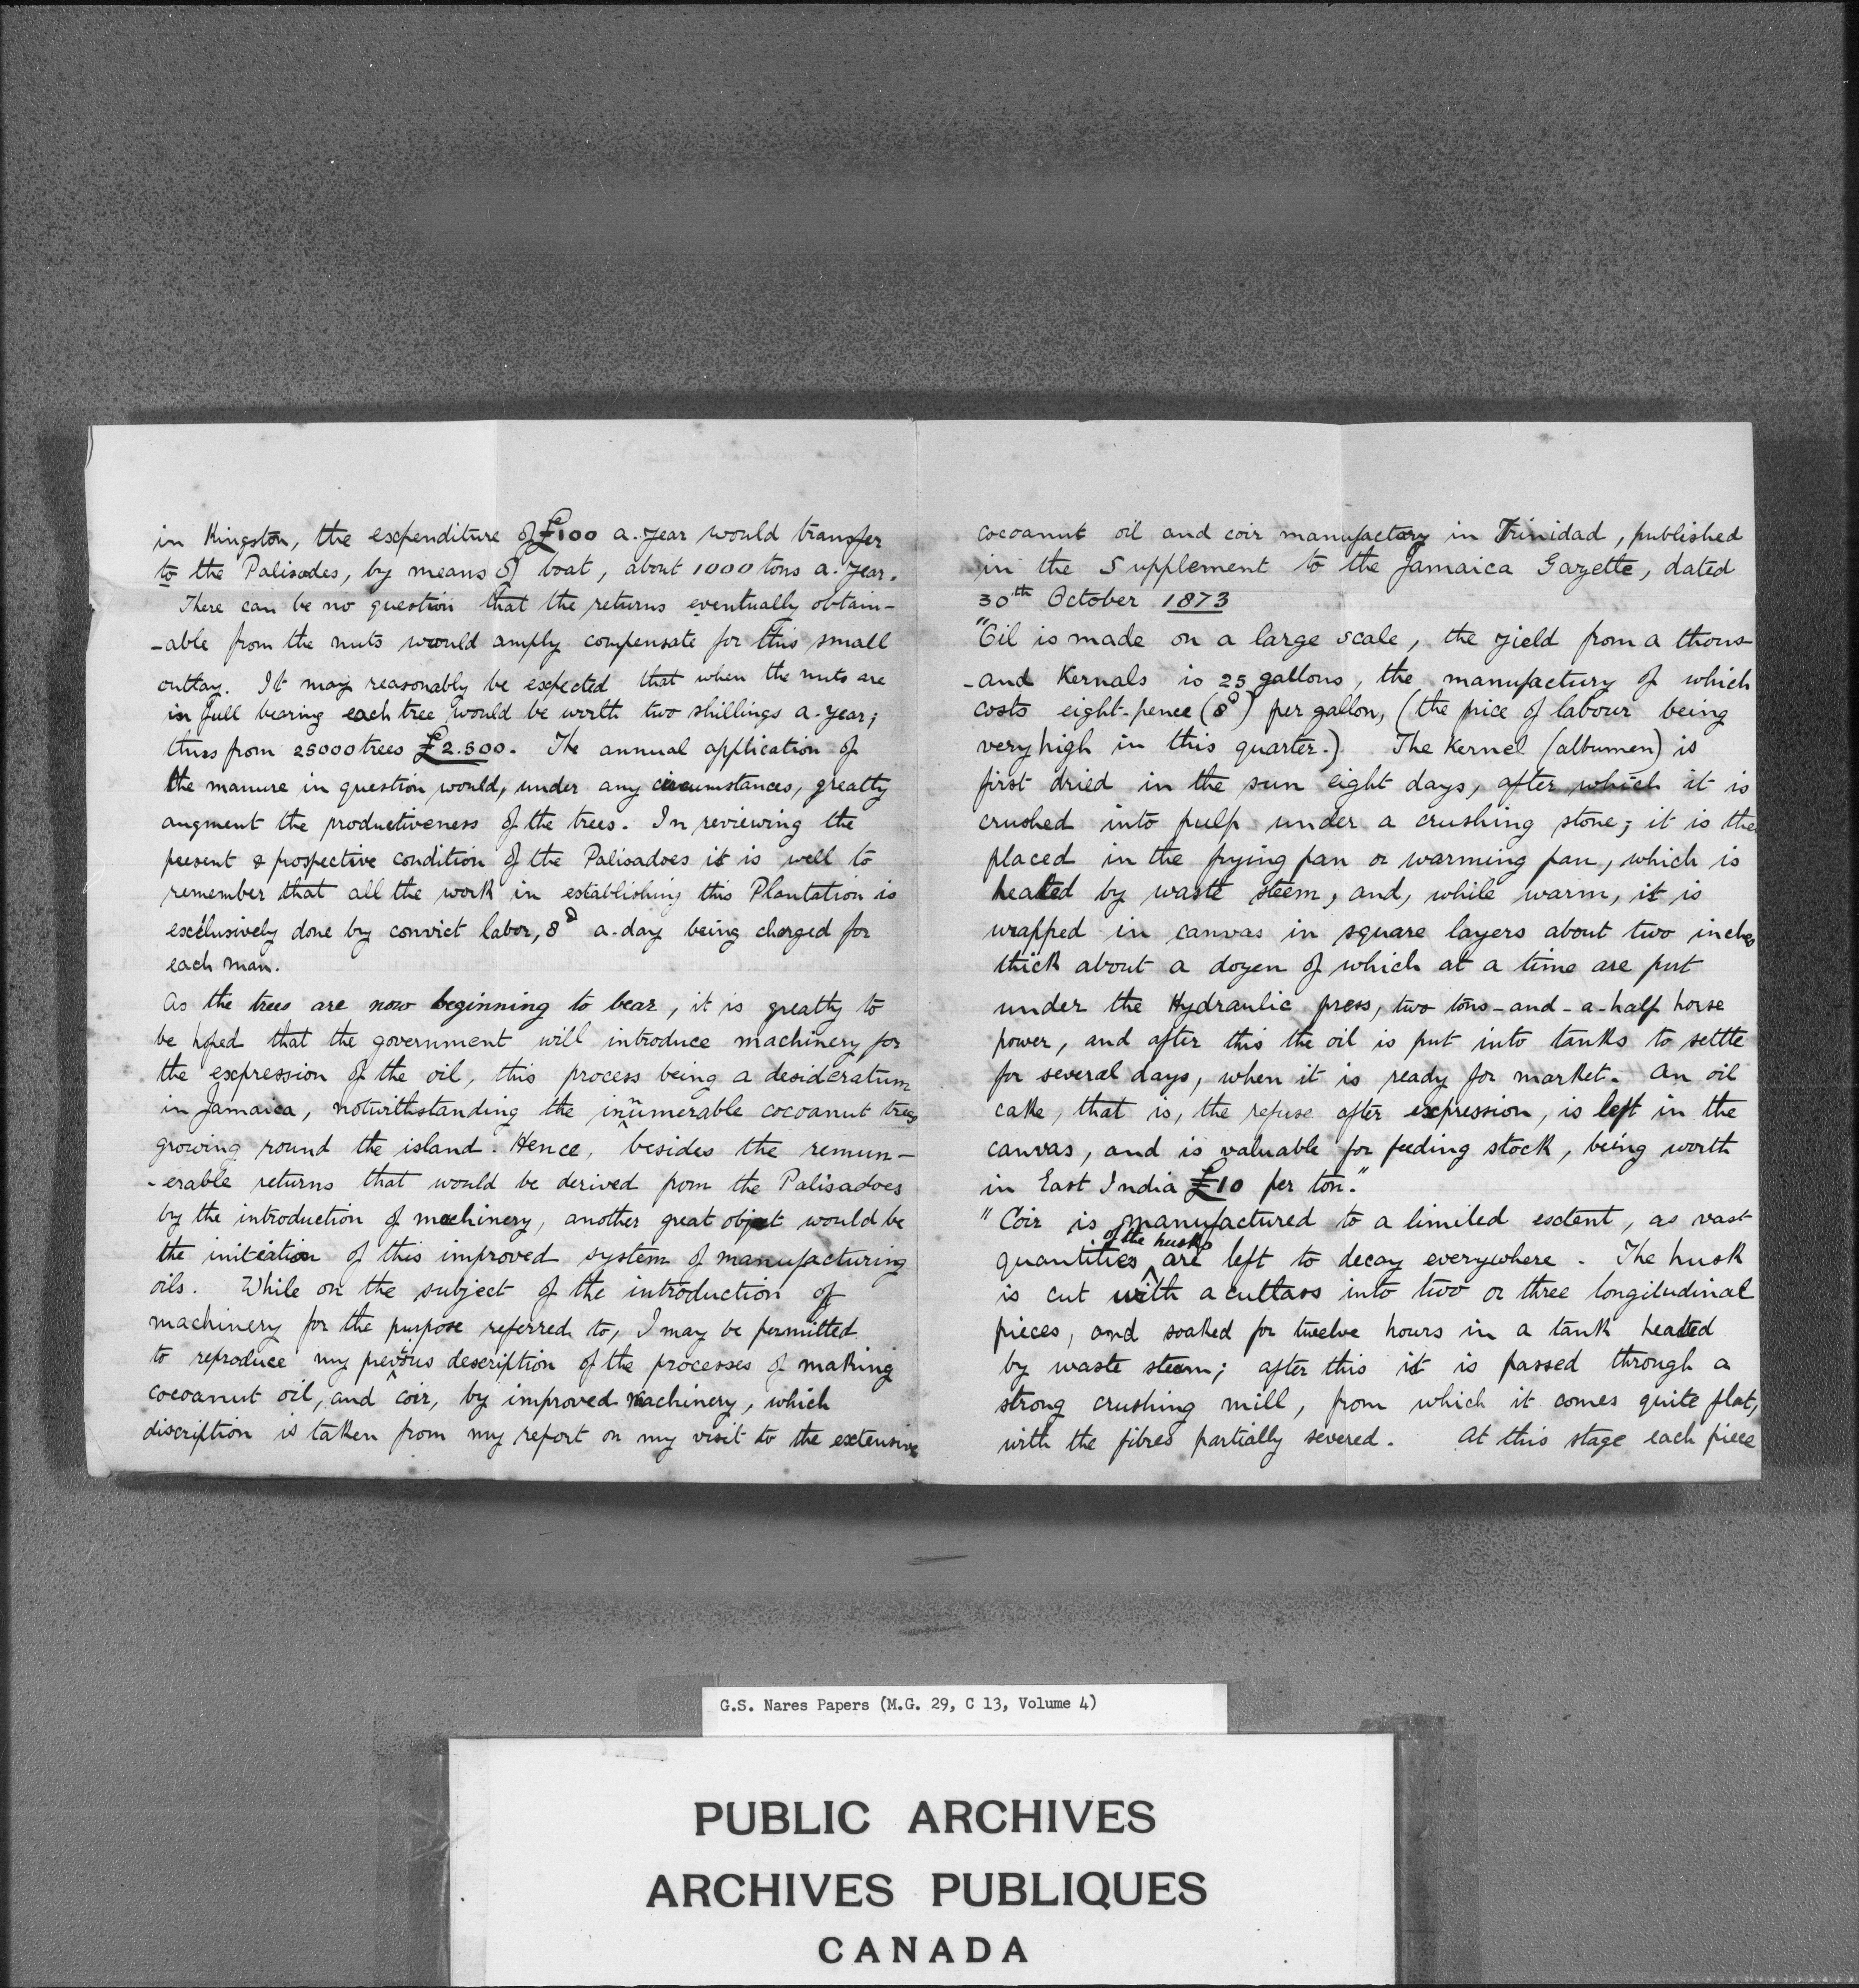 in Kingston, the expenditure of £100 a-year would transfer
to the Palisades, by means of boat, about 1000 tons a-year.
There can be no question that the returns eventually obtain-
-able from the nuts would amply compensate for this small
outlay. It may reasonably be expected that when the nuts are
in full bearing each tree would be worth two shillings a-year;
thus from 25000 trees £2.500. The annual application of
the manure in question would, under any circumstances, greatly
augment the productiveness of the trees. In reviewing the
present & prospective condition of the Palisadoes it is well to
remember that all the work in establishing this Plantation is
exclusively done by convict labor, 8D a-day being charged for
each man.
As the trees are now beginning to bear, it is greatly to
be hoped that the government will introduce machinery for
the expression of the oil, this process being a desideratum
in Jamaica, notwithstanding the innumerable cocoanut trees
growing round the island. Hence, besides the remun-
-erable returns that would be derived from the Palisadoes
by the introduction of machinery, another great object would be
the initiation of this improved system of manufacturing
oils. While on the subject of the introduction of
machinery for the purpose referred to, I may be permitted
to reproduce my previous description of the processes of making
cocoanut oil, and coir, by improved machinery, which
discription is taken from my report on my visit to the extensive
cocoanut oil and coir manufactory in Trinidad, published
in the Supplement to the Jamaica Gazette, dated
30th October 1873
"Oil is made on a large scale, the yield from a thous-
-and Kernals is 25 gallons, the manufactury of which
costs eight-pence (8D) per gallon, (the price of labour being
very high in this quarter.) The Kernel (albumen) is
first dried in the sun eight days, after which it is
crushed into pulp under a crushing stone; it is the
placed in the frying pan or warming pan, which is
heated by waste steem, and, while warm, it is
wrapped in canvas in square layers about two inches
thick about a dozen of which at a time are put
under the Hydraulic press, two tons-and-a-half horse
power, and after this the oil is put into tanks to settle
for several days, when it is ready for market. An oil
cake, that is, the refuse after expression, is left in the
canvas, and is valuable for feeding stock, being worth
in East India £10 per ton."
"Coir is manufactured to a limited extent, as vast
of the husks
quantities are left to decay everywhere. The husk
is cut with a cutlass into two or three longitudinal
pieces, and soaked for twelve hours in a tank heated
by waste steam; after this it is passed through a
strong crushing mill, from which it comes quite flat,
with the fibres partially severed. At this stage each piece
G.S. Nares Papers (M.G. 29, C 13, Volume 4)
PUBLIC ARCHIVES
ARCHIVES PUBLIQUES
CANADA